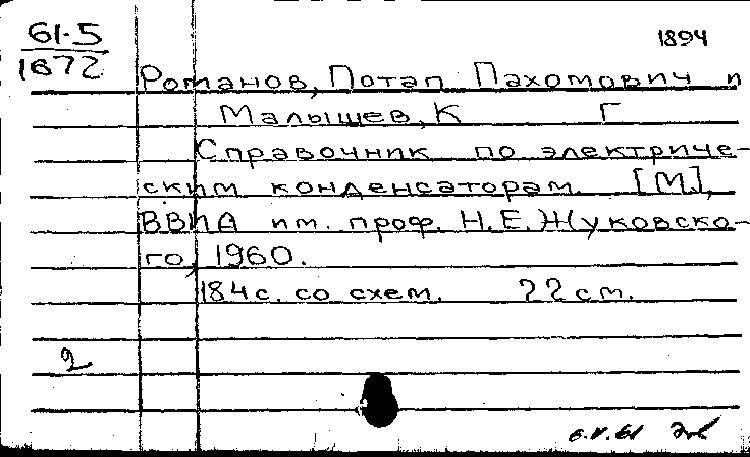 61-5
1872
1894
Романов, Потап Пахомович и
Малышев, К Г
Справочник по электриче-
ским конденсаторам. [М.],
ВВИА им. проф. Н.Е.Жуковско-
го, 1960.
184 с. со схем. 22 см.
2
6.V.61